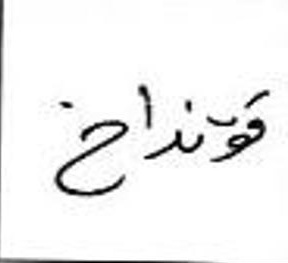 قوتنداخ